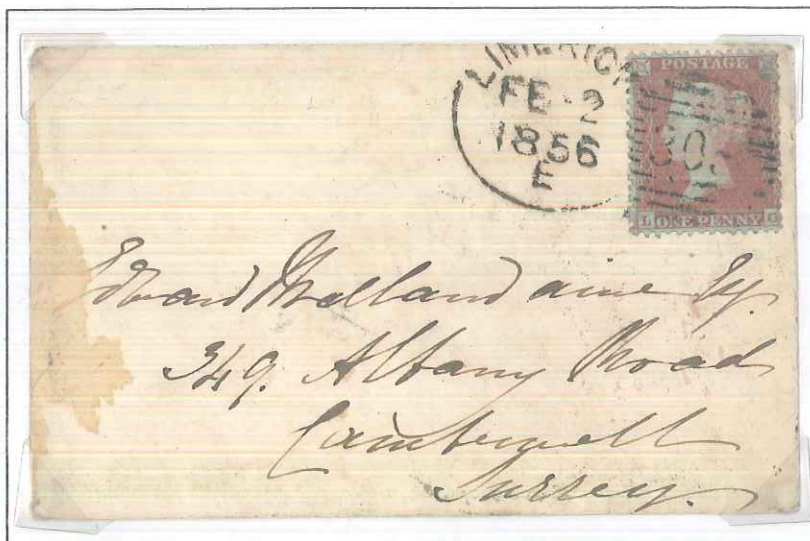 LIMERICK
FE 2
1856
F
POSTAGE
30
L ONE PENNY G
Edward Mallandaine Esq
349. Albany Road
Camberwell
Surrey.